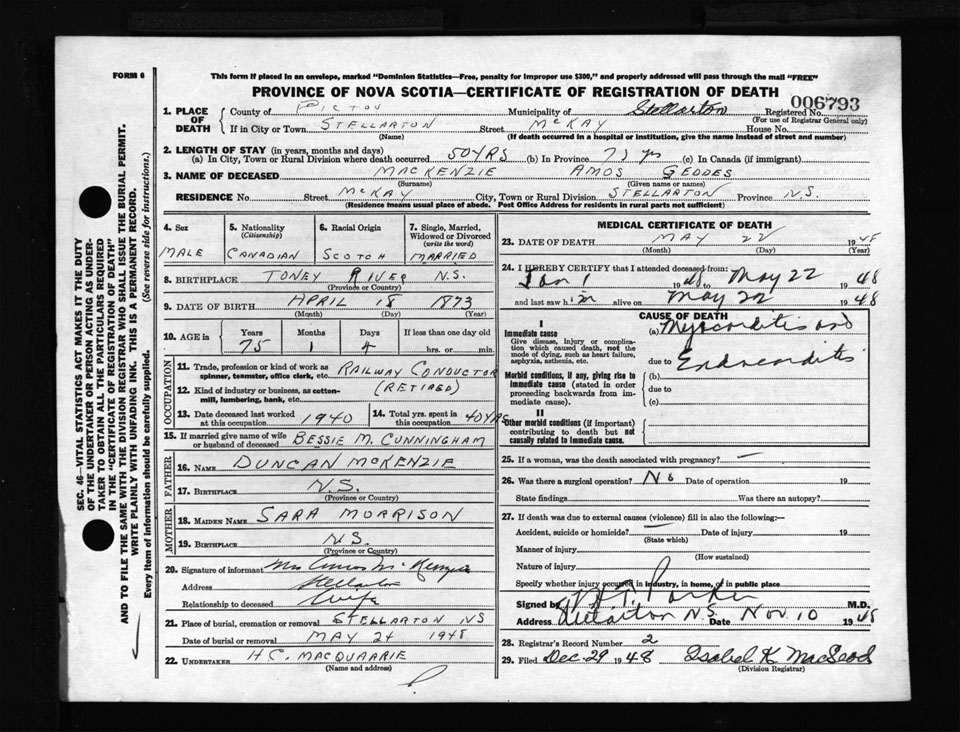 FORM 6
This form if placed in an envelope, marked "Dominion Statistics—Free, penalty for improper use $300," and properly addressed will pass through the mail "FREE"
PROVINCE OF NOVA SCOTIA—CERTIFICATE OF REGISTRATION OF DEATH
006793
1. PLACE OF DEATH County of PICTOU Municipality of Stellarton Registered No.
(For use of Registrar General only)
If in City or Town STELLARTON Street McKAY House No.
(Name) (If death occurred in a hospital or institution, give the name instead of street and number)
2. LENGTH OF STAY (in years, months and days)
(a) In City, Town or Rural Division where death occurred 50 YRS (b) In Province 75 yrs (c) In Canada (if immigrant)
3. NAME OF DECEASED MACKENZIE AMOS GEDDES
(Surname) (Given name or names)
RESIDENCE No. Street McKAY City, Town or Rural Division STELLARTON Province N.S.
(Residence means usual place of abede. Post Office Address for residents in rural parts not sufficient)
4. Sex 5. Nationality (Citizenship) 6. Racial Origin 7. Single, Married, Widowed or Divorced (write the word)
MALE CANADIAN SCOTCH MARRIED
8. BIRTHPLACE TONEY RIVER N.S.
(Province or Country)
9. DATE OF BIRTH APRIL 18 1873
(Month) (Day) (Year)
10. AGE in Years Months Days If less than one day old
75 1 4 hrs. or min.
OCCUPATION
11. Trade, profession or kind of work as spinner, teamster, office clerk, etc. RAILWAY CONDUCTOR
12. Kind of industry or business, as cotton-mill, lumbering, bank, etc. (RETIRED)
13. Date deceased last worked at this occupation 1940 14. Total yrs. spent in this occupation 40 YRS
15. If married give name of wife or husband of deceased BESSIE M. CUNNINGHAM
FATHER
16. NAME DUNCAN McKENZIE
17. BIRTHPLACE N.S.
(Province or Country)
MOTHER
18. MAIDEN NAME SARA MORRISON
19. BIRTHPLACE N.S.
(Province or Country)
20. Signature of informant Mrs Amos McKenzie
Address Stellarton
Relationship to deceased Wife
21. Place of burial, cremation or removal STELLARTON NS
Date of burial or removal MAY 24 1948
22. UNDERTAKER H.C. MACQUARRIE
(Name and address)
MEDICAL CERTIFICATE OF DEATH
23. DATE OF DEATH MAY 22 1948
(Month) (Day) (Year)
24. I HEREBY CERTIFY that I attended deceased from:
Jan 1 1948 to May 22 1948
and last saw him alive on May 22 1948
CAUSE OF DEATH
I
Immediate cause (a) Myocarditis and
Give disease, injury or complication which caused death, not the mode of dying, such as heart failure, asphyxia, asthenia, etc.
due to Endocarditis
Morbid conditions, if any, giving rise to immediate cause (stated in order proceeding backwards from immediate cause). (b)
due to
(c)
II
Other morbid conditions (if important) contributing to death but not causally related to immediate cause.
25. If a woman, was the death associated with pregnancy? —
26. Was there a surgical operation? No Date of operation 19
State findings Was there an autopsy?
27. If death was due to external causes (violence) fill in also the following:—
Accident, suicide or homicide? Date of injury 19
(State which)
Manner of injury
(How sustained)
Nature of injury
Specify whether injury occurred in industry, in home, or in public place
Signed by Parker M.D.
Address Stellarton N.S. Date Nov. 10 1948
28. Registrar's Record Number 2
29. Filed Dec. 29 1948 Isabel K. MacLeod
(Division Registrar)
SEC. 46—VITAL STATISTICS ACT MAKES IT THE DUTY
OF THE UNDERTAKER OR PERSON ACTING AS UNDER-
TAKER TO OBTAIN ALL THE PARTICULARS REQUIRED
IN THE "CERTIFICATE OF REGISTRATION OF DEATH"
AND TO FILE THE SAME WITH THE DIVISION REGISTRAR WHO SHALL ISSUE THE BURIAL PERMIT.
WRITE PLAINLY WITH UNFADING INK. THIS IS A PERMANENT RECORD.
Every item of information should be carefully supplied. (See reverse side for instructions.)